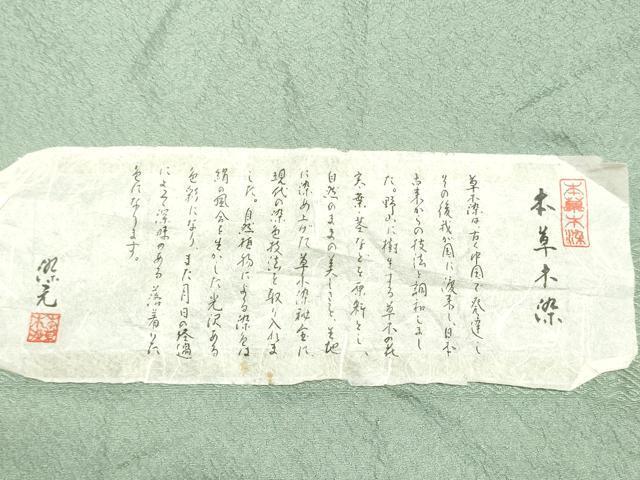 本草木染
本草木染
草木染は古く中国で発達し
その後我が国に渡来し日本
古来からの技法と調和しまし
た。野山に樹生する草木の花
実葉茎などを原料とし、
自然のままの美しさを、生地
に染め上げた草木染に
現代の染色技法を取り入れま
した。自然植物による染色は
絹の風合を生かした光沢ある
色彩になり、また月日の経過
によって深味のある落着いた
色になります。
染元